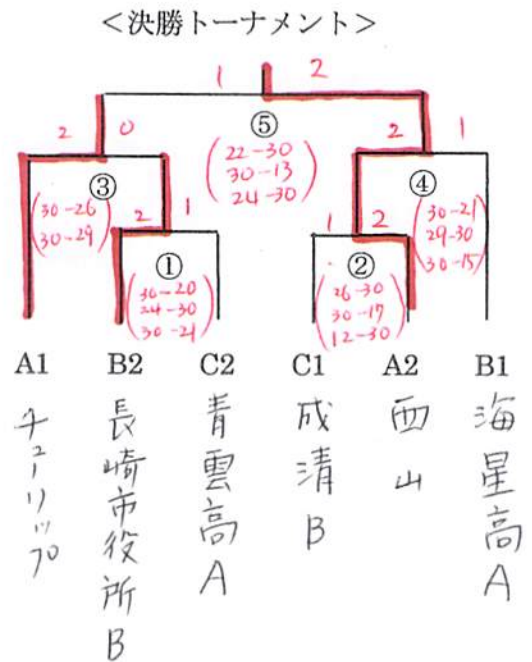 ＜決勝トーナメント＞
1 2
2 0 ⑤ 2 1
22-30
30-13
24-30
③ ④
30-26
30-29
30-21
29-30
30-15
2 1 1 2
① ②
30-20
24-30
30-21
26-30
30-17
12-30
A1 B2 C2 C1 A2 B1
チューリップ
長崎市役所B
青雲高A
成清B
西山
海星高A